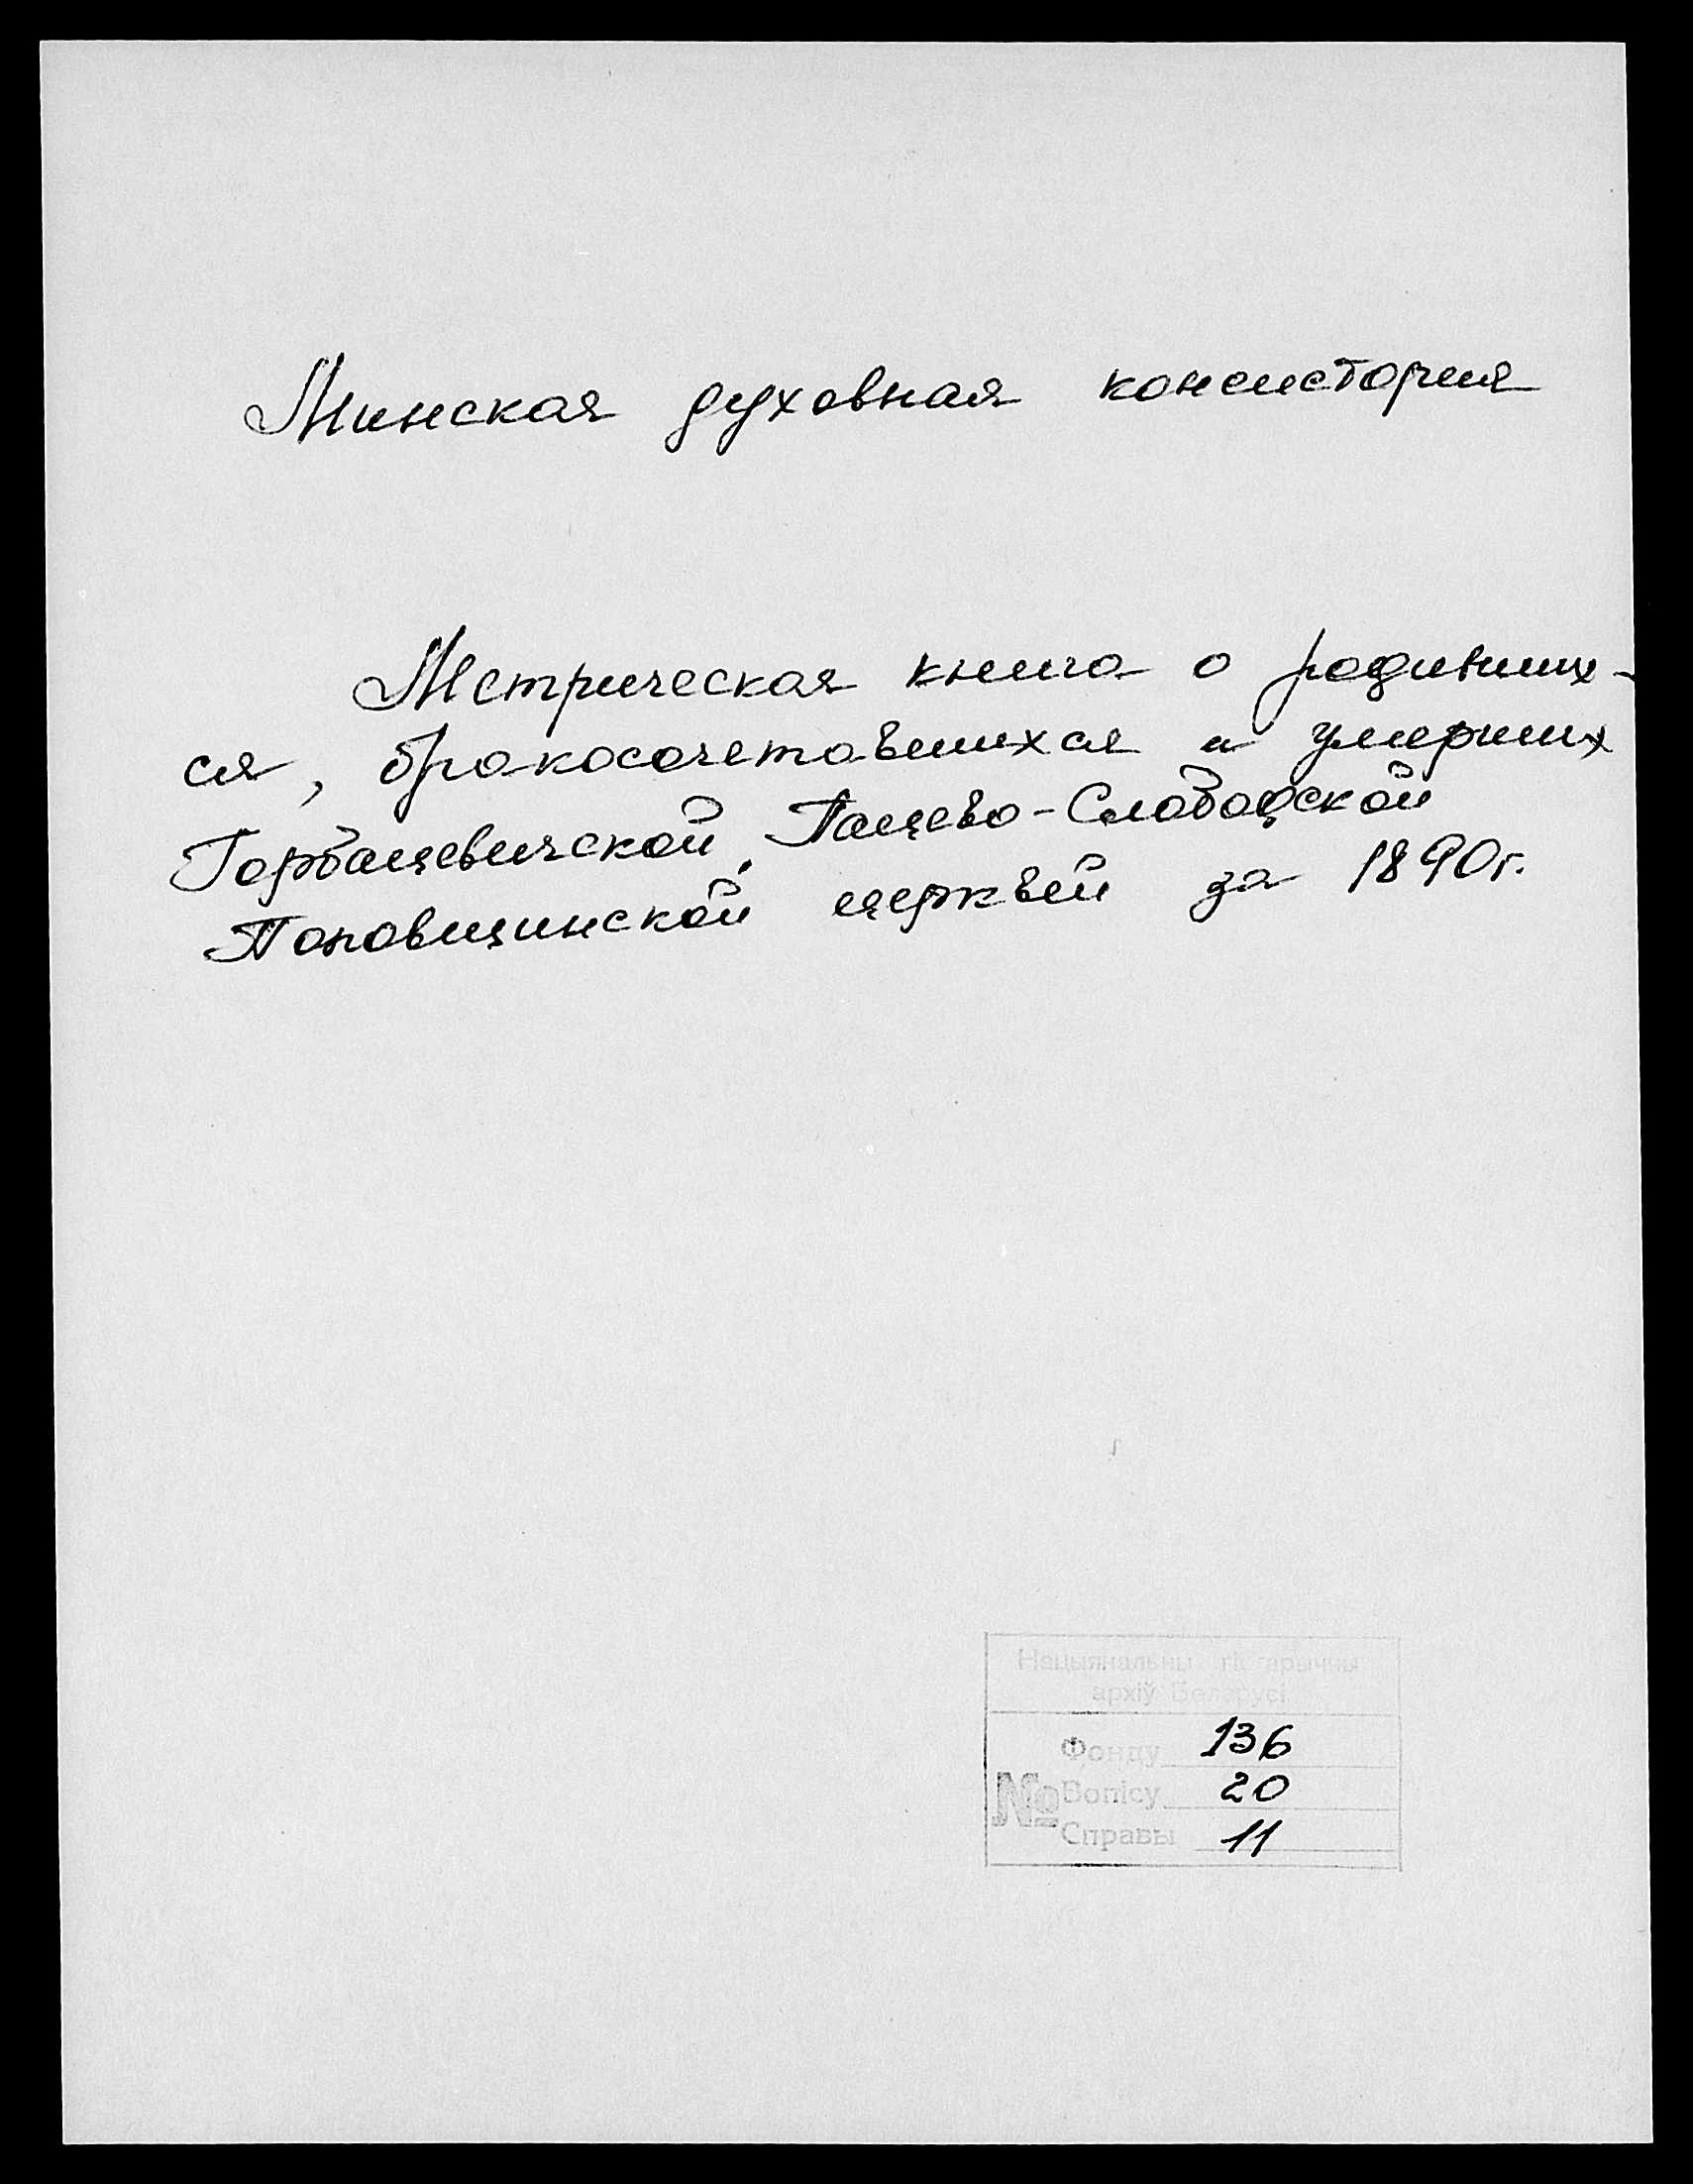 Минская духовная консистория
Метрическая книга о родивших-
ся, бракосочетавшихся и умерших
Горбацевичской, Пацево-Слободской
Поповщинской церквей за 1890г.
Нацыянальны гістарычны
архіў Беларусі
Фонду 136
№ Вопісу 20
Справы 11